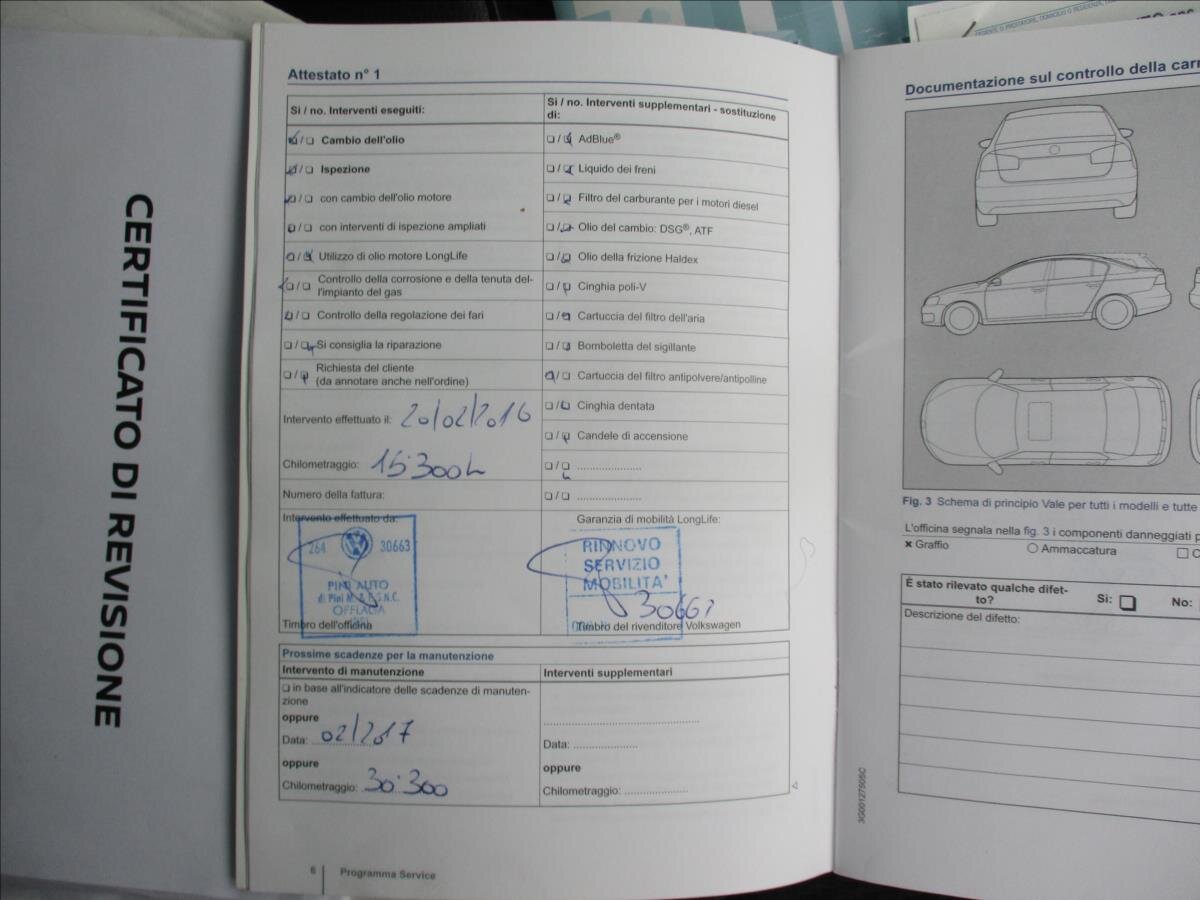 CERTIFICATO DI REVISIONE
Attestato n° 1
Si / no. Interventi eseguiti:
Si / no. Interventi supplementari - sostituzione
di:
Cambio dell'olio
AdBlue®
Ispezione
Liquido dei freni
con cambio dell'olio motore
Filtro del carburante per i motori diesel
con interventi di ispezione ampliati
Olio del cambio: DSG®, ATF
Utilizzo di olio motore LongLife
Olio della frizione Haldex
Controllo della corrosione e della tenuta del-
l'impianto del gas
Cinghia poli-V
Controllo della regolazione dei fari
Cartuccia del filtro dell'aria
Si consiglia la riparazione
Bomboletta del sigillante
Richiesta del cliente
(da annotare anche nell'ordine)
Cartuccia del filtro antipolvere/antipolline
Intervento effettuato il: 20/02/2016
Cinghia dentata
Candele di accensione
Chilometraggio: 15.300
Numero della fattura:
Intervento effettuato da:
Garanzia di mobilità LongLife:
264 30663
PINI AUTO
di Pini M. & F. S.N.C.
RINNOVO
SERVIZIO
MOBILITA'
30663
Timbro dell'officina
Timbro del rivenditore Volkswagen
Prossime scadenze per la manutenzione
Intervento di manutenzione
Interventi supplementari
in base all'indicatore delle scadenze di manuten-
zione
oppure
Data: 02/2017
Data:
oppure
oppure
Chilometraggio: 30.300
Chilometraggio:
6 Programma Service
Documentazione sul controllo della carr
Fig. 3 Schema di principio Vale per tutti i modelli e tutte
L'officina segnala nella fig. 3 i componenti danneggiati p
× Graffio
Ammaccatura
È stato rilevato qualche difet-
to?
Si:
No:
Descrizione del difetto:
3G0012750SC